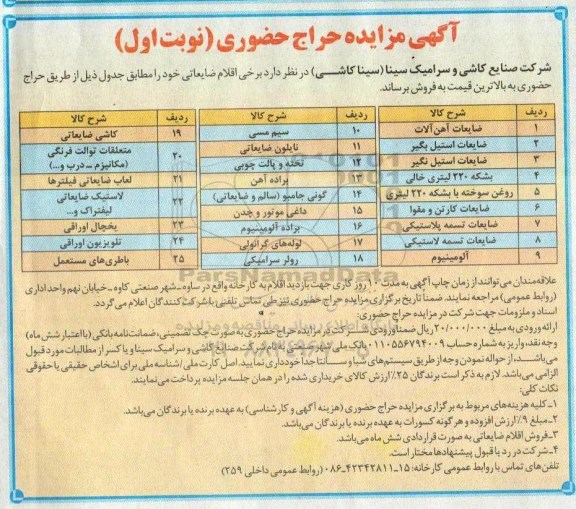 آگهی مزایده حراج حضوری (نوبت اول)
شرکت صنایع کاشی و سرامیک سینا (سینا کاشی) در نظر دارد برخی اقلام ضایعاتی خود را مطابق جدول ذیل از طریق حراج
حضوری به بالاترین قیمت به فروش برساند.
ردیف شرح کالا
۱ ضایعات آهن آلات
۲ ضایعات استیل بگیر
۳ ضایعات استیل نگیر
۴ بشکه ۲۲۰ لیتری خالی
۵ روغن سوخته با بشکه ۲۲۰ لیتری
۶ ضایعات کارتن و مقوا
۷ ضایعات تسمه پلاستیکی
۸ ضایعات تسمه لاستیکی
۹ آلومینیوم
ردیف شرح کالا
۱۰ سیم مسی
۱۱ نایلون ضایعاتی
۱۲ تخته و پالت چوبی
۱۳ براده آهن
۱۴ گونی جامبو (سالم و ضایعاتی)
۱۵ داغی موتور و چدن
۱۶ براده آلومینیوم
۱۷ لوله‌های گرانولی
۱۸ رولر سرامیکی
ردیف شرح کالا
۱۹ کاشی ضایعاتی
۲۰ متعلقات توالت فرنگی
(مکانیزم - درب و...)
۲۱ لعاب ضایعاتی فیلترها
۲۲ لاستیک ضایعاتی
لیفتراک و...
۲۳ یخچال اوراقی
۲۴ تلویزیون اوراقی
۲۵ باطری‌های مستعمل
ParsNamadData
علاقه‌مندان می‌توانند از زمان چاپ آگهی به مدت ۱۰ روز کاری جهت بازدید اقلام به کارخانه واقع در ساوه - شهر صنعتی کاوه - خیابان نهم واحد اداری
(روابط عمومی) مراجعه نمایند. ضمناً تاریخ برگزاری مزایده حراج حضوری نیز طی تماس تلفنی با شرکت کنندگان اعلام می‌گردد.
اسناد و ملزومات جهت شرکت در مزایده حراج حضوری:
ارائه ورودی به مبلغ ۲۰/۰۰۰/۰۰۰ ریال ضمناً ورودی شرکت در مزایده حراج حضوری به صورت چک تضمینی، ضمانت‌نامه بانکی (با اعتبار شش ماه)
وجه نقد، واریز به شماره حساب ۰۱۱۰۵۵۶۷۹۴۰۰۹ بانک ملی به نام شرکت صنایع کاشی و سرامیک سینا و یا کسر از مطالبات مورد قبول
می‌باشد. از حواله نمودن وجه از طریق سیستم‌های شبا و ساتنا جداً خودداری نمایید. اصل کارت ملی / شناسه ملی برای اشخاص حقیقی یا حقوقی
الزامی می‌باشد. لازم به ذکر است برندگان ۲۵٪ ارزش کالای خریداری شده را در همان جلسه مزایده پرداخت می‌نمایند.
نکات کلی:
۱- کلیه هزینه‌های مربوط به برگزاری مزایده حراج حضوری (هزینه آگهی و کارشناسی) به عهده برنده یا برندگان می‌باشد.
۲- مبلغ ۹٪ ارزش افزوده و هرگونه کسورات به عهده برنده یا برندگان می‌باشد.
۳- فروش اقلام ضایعاتی به صورت قراردادی شش ماه می‌باشد.
۴- شرکت در رد یا قبول پیشنهادها مختار است.
تلفن‌های تماس با روابط عمومی کارخانه: ۱۵-۴۲۳۴۲۸۱۱-۰۸۶ (روابط عمومی داخلی ۲۵۹)